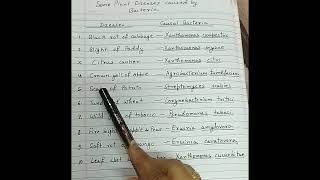 Some Plant Diseases caused by
Bacteria.
Diseases Causal Bacteria
1. Black rot of cabbage - Xanthomonas campestris
2. Blight of Paddy - Xanthomonas oryzae
3. Citrus canker - Xanthomonas citri
4. Crown gall of apple - Agrobacterium tumefaciens
5. of Potato - Streptomyces scabies
6. wheat - Corynebacterium tritici
7. Wild of tobacco - Pseudomonas tabaci.
8. Fire - Erwinia amylovora
9. Soft rot - Erwinia caratovora
10. Leaf - Xanthomonas